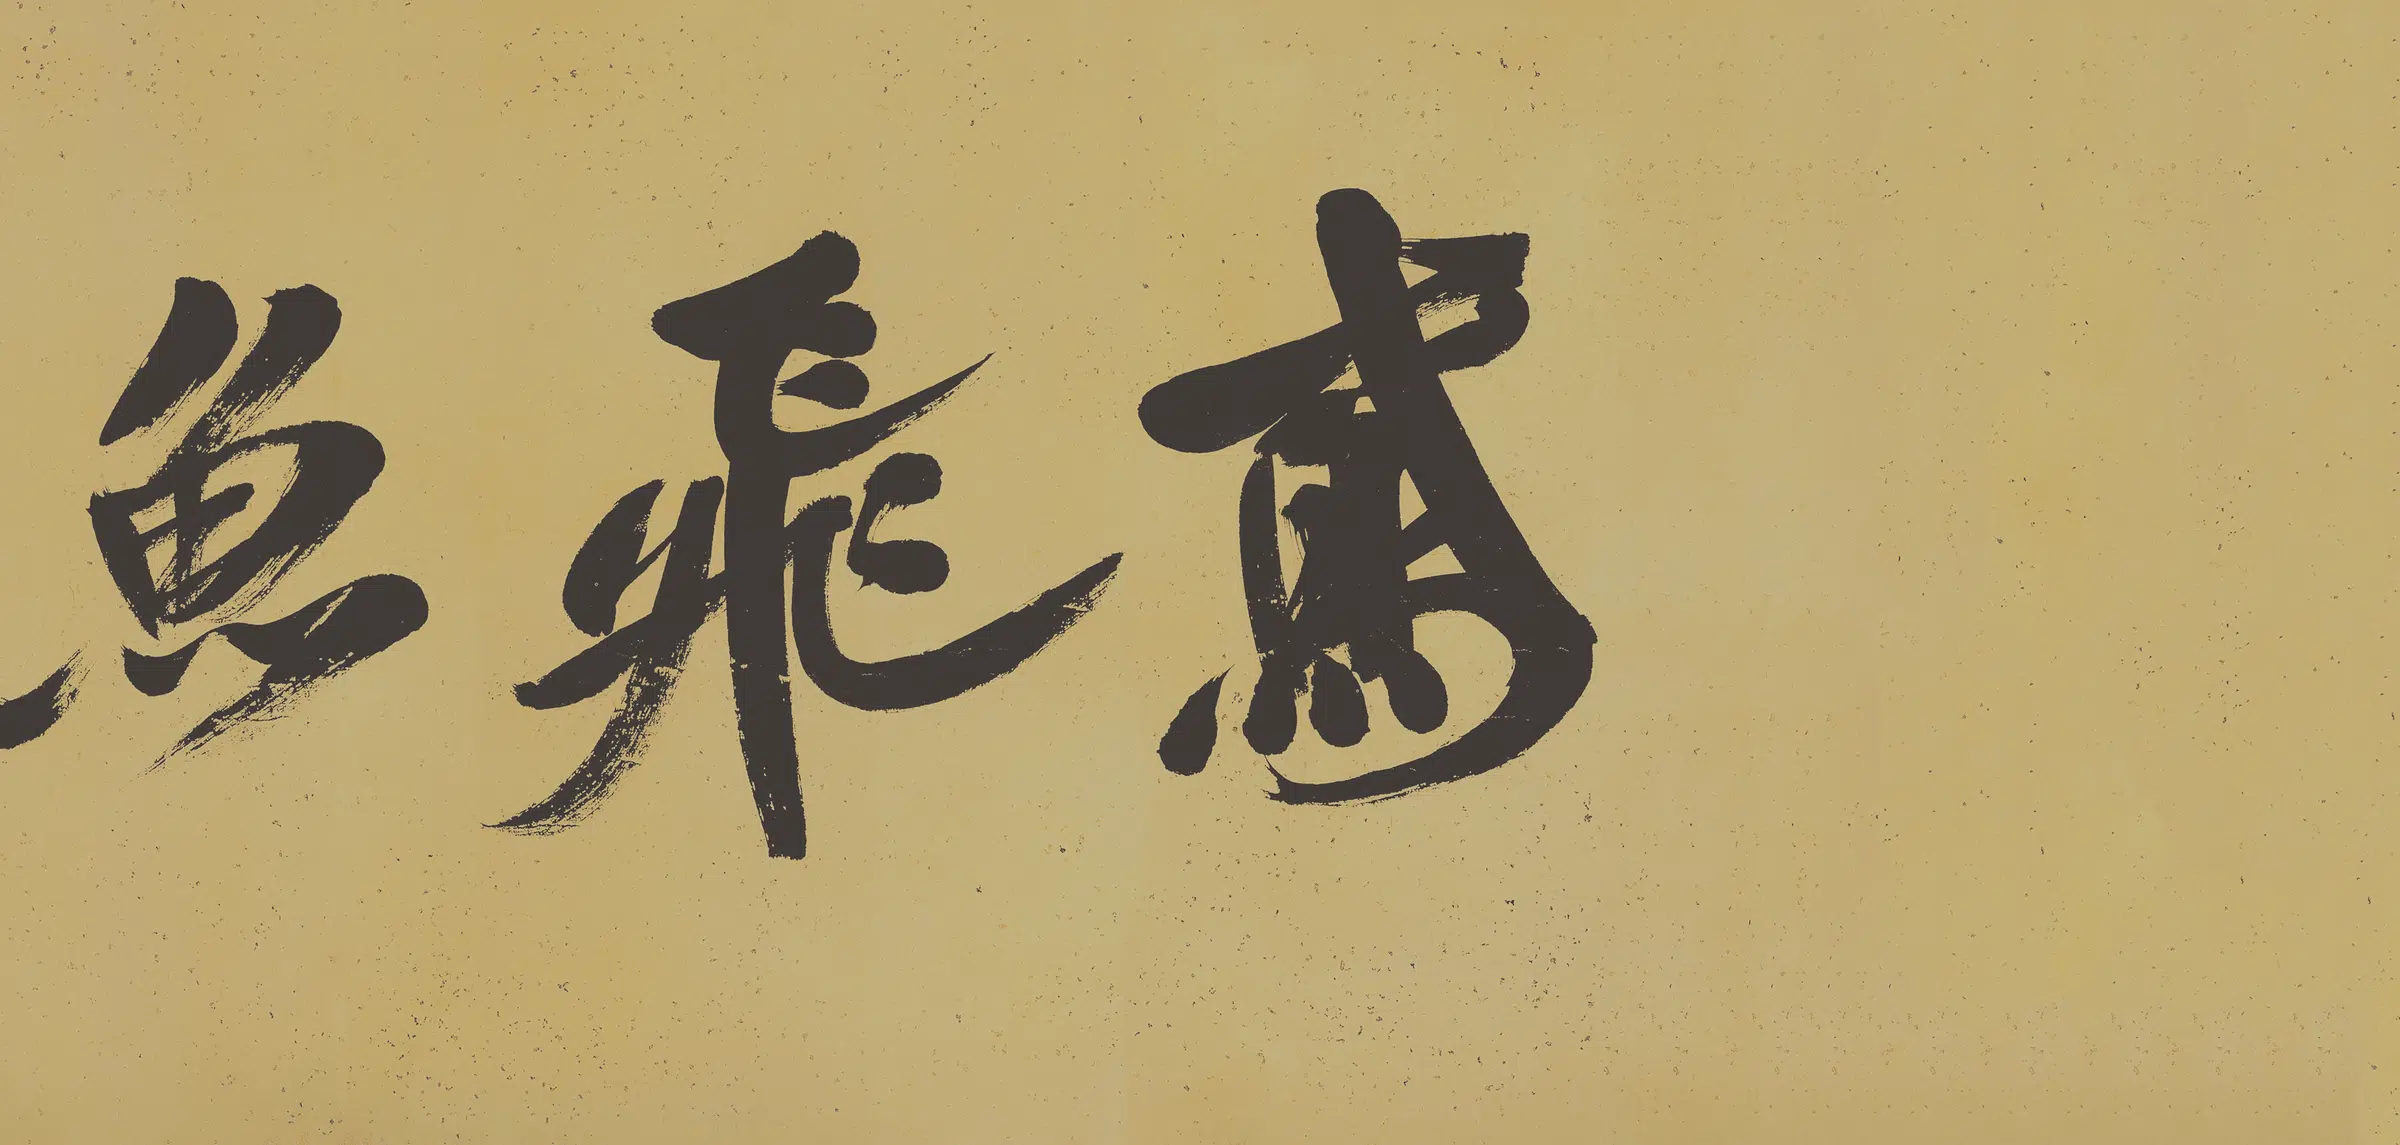 鳶飛魚